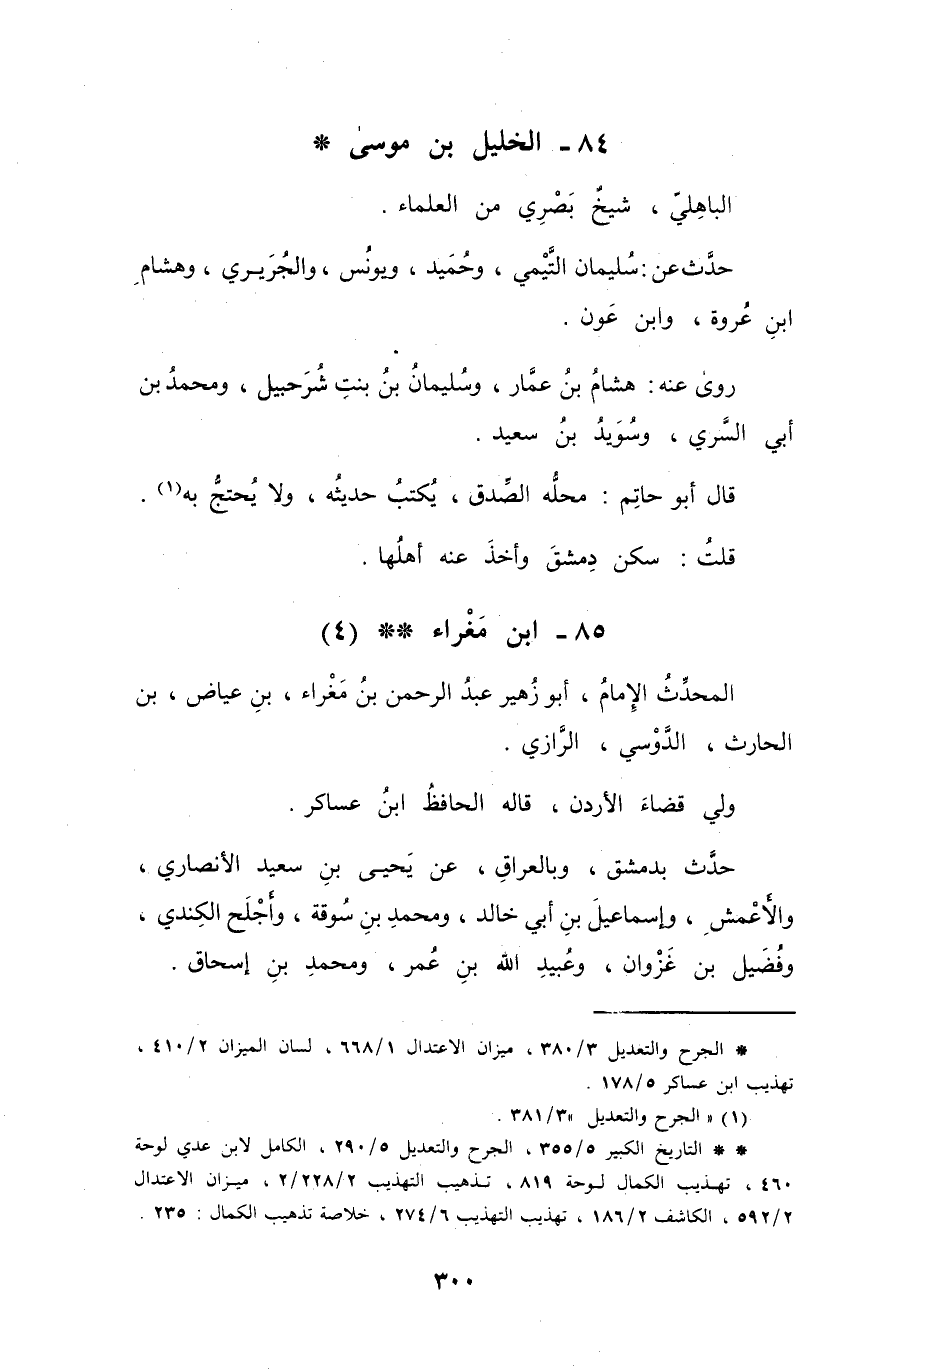 ٨٤ - الخليل بن موسىٰ *
الباهِليّ ، شيخٌ بَصْرِي من العلماء .
حدَّث عن : سُليمان التَّيْمي ، وحُمَيد ، ويونُس ، والجُرَيـري ، وهشامِ
ابنِ عُروة ، وابن عَون .
روىٰ عنه : هشامُ بنُ عمَّار ، وسُليمانُ بنُ بنتِ شُرَحبيل ، ومحمدُ بن
أبي السَّري ، وسُوَيدُ بنُ سعيد .
قال أبو حاتِم : محلُّه الصِّدق ، يُكتبُ حديثُه ، ولا يُحتجُّ به(١) .
قلتُ : سكن دِمشقَ وأخذَ عنه أهلُها .
٨٥ - ابن مَغْراء ** (٤)
المحدِّثُ الإِمامُ ، أبو زُهير عبدُ الرحمن بنُ مَغْراء ، بنِ عياض ، بن
الحارث ، الدَّوْسي ، الرَّازي .
ولي قضاءَ الأردن ، قاله الحافظُ ابنُ عساكر .
حدَّث بدمشق ، وبالعراقِ ، عن يَحيـى بنِ سعيد الأنصاري ،
والأَعْمشِ ، وإسماعيلَ بنِ أبي خالد ، ومحمدِ بنِ سُوقة ، وأَجْلَح الكِندي ،
وفُضَيل بن غَزْوان ، وعُبيدِ الله بنِ عُمر ، ومحمدِ بنِ إسحاق .
* الجرح والتعديل ٣/ ٣٨٠ ، ميزان الاعتدال ١/ ٦٦٨ ، لسان الميزان ٢/ ٤١٠ ،
تهذيب ابن عساكر ٥/ ١٧٨ .
(١) « الجرح والتعديل » ٣/ ٣٨١ .
* * التاريخ الكبير ٥/ ٣٥٥ ، الجرح والتعديل ٥/ ٢٩٠ ، الكامل لابن عدي لوحة
٤٦٠ ، تهـذيب الكمال لـوحة ٨١٩ ، تـذهيب التهذيب ٢/ ٢٢٨/ ٢ ، ميـزان الاعتدال
٢/ ٥٩٢ ، الكاشف ٢/ ١٨٦ ، تهذيب التهذيب ٦/ ٢٧٤ ، خلاصة تذهيب الكمال : ٢٣٥ .
٣٠٠